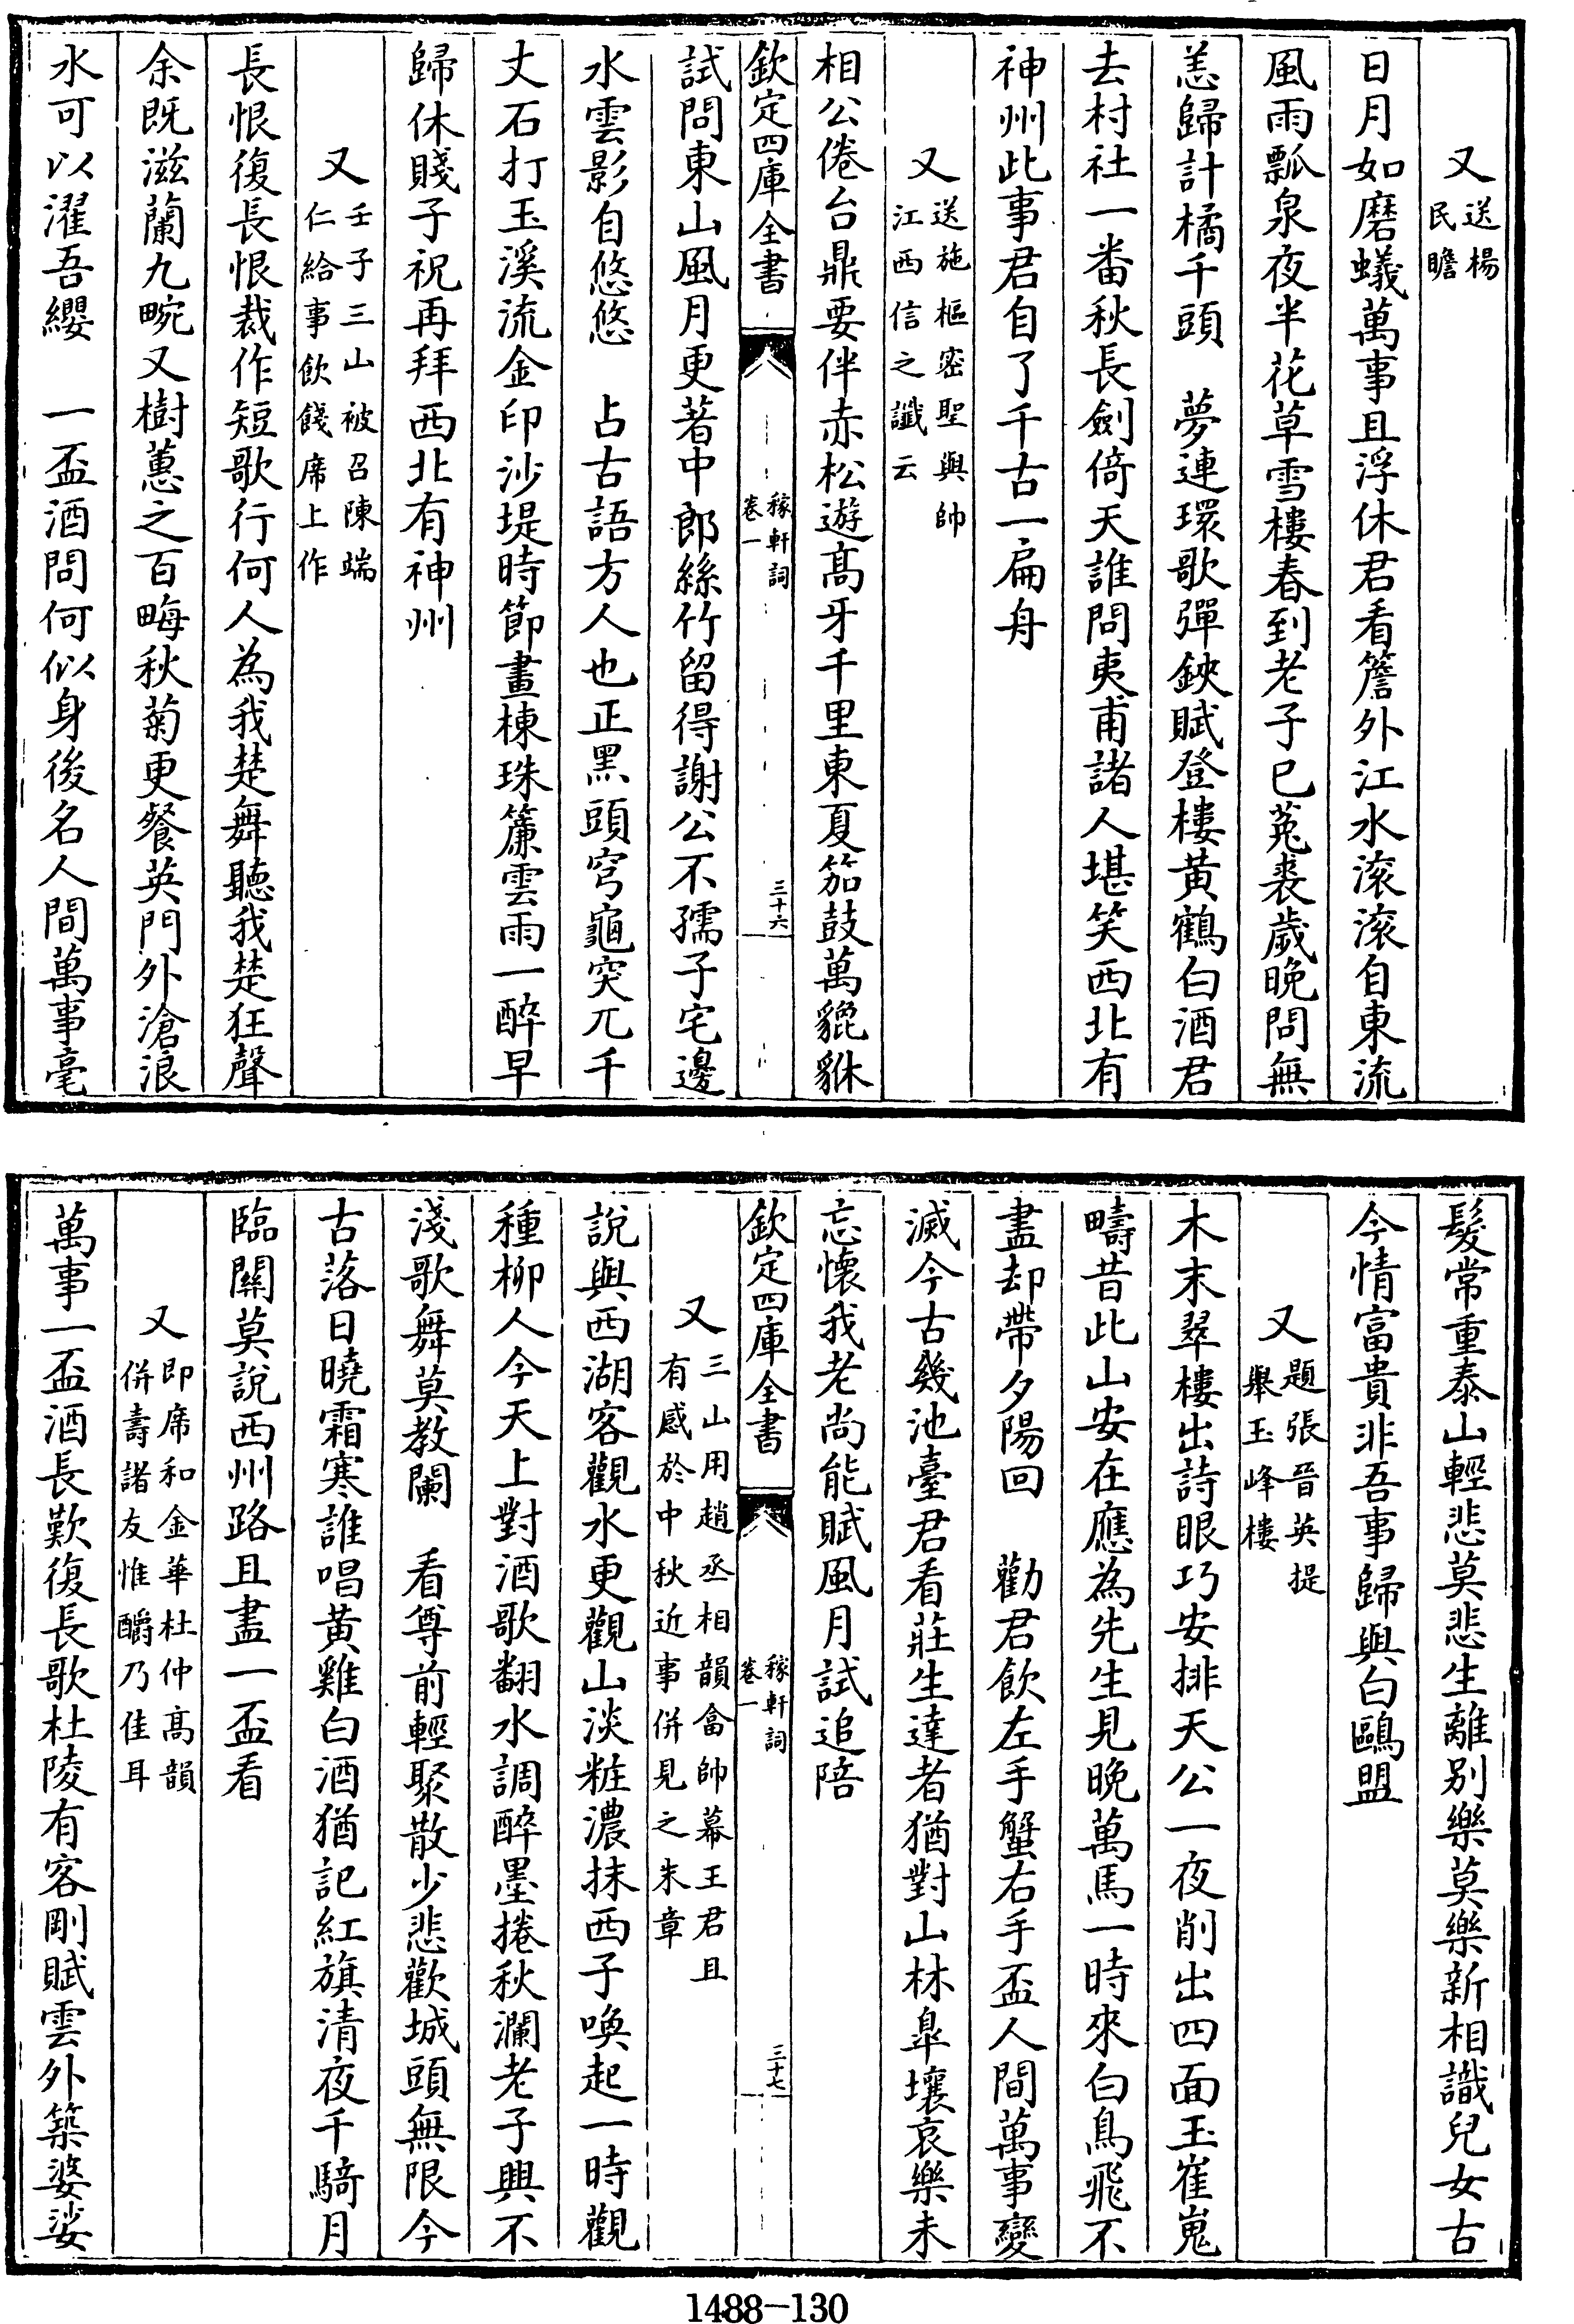 又送楊民瞻
日月如磨蟻萬事且浮休君看簷外江水滚滚自東流
風雨瓢泉夜半花草雪樓春到老子已菟裘歲晚問無
恙歸計橘千頭　夢連環歌彈鋏賦登樓黄鶴白酒君
去村社一番秋長劍倚天誰問夷甫諸人堪笑西北有
神州此事君自了千古一扁舟
又送施樞密聖與帥江西信之讖云
相公倦台鼎要伴赤松遊髙牙千里東夏笳鼓萬貔貅
欽定四庫全書　稼軒詞卷一　三十六
試問東山風月更著中郎絲竹留得謝公不孺子宅邊
水雲影自悠悠　占古語方人也正黑頭穹龜突兀千
丈石打玉溪流金印沙堤時節畫棟珠簾雲雨一醉早
歸休賤子祝再拜西北有神州
又壬子三山被召陳端仁給事飲餞席上作
長恨復長恨裁作短歌行何人為我楚舞聽我楚狂聲
余既滋蘭九畹又樹蕙之百畮秋菊更餐英門外滄浪
水可以濯吾纓　一盃酒問何似身後名人間萬事毫
髮常重泰山輕悲莫悲生離别樂莫樂新相識兒女古
今情富貴非吾事歸與白鷗盟
又題張晉英提舉玉峰樓
木末翠樓出詩眼巧安排天公一夜削出四面玉崔嵬
疇昔此山安在應為先生見晚萬馬一時來白鳥飛不
盡却帶夕陽回　勸君飲左手蟹右手盃人間萬事變
滅今古幾池臺君看莊生達者猶對山林臯壤哀樂未
忘懷我老尚能賦風月試追陪
欽定四庫全書　稼軒詞卷一　三十七
又三山用趙丞相韻畣帥幕王君且有感於中秋近事併見之朱章
說與西湖客觀水更觀山淡粧濃抹西子喚起一時觀
種柳人今天上對酒歌翻水調醉墨捲秋瀾老子興不
淺歌舞莫教闌　看尊前輕聚散少悲歡城頭無限今
古落日曉霜寒誰唱黄雞白酒猶記紅旗清夜千騎月
臨關莫說西州路且盡一盃看
又即席和金華杜仲髙韻併壽諸友惟釂乃佳耳
萬事一盃酒長歎復長歌杜陵有客剛賦雲外築婆娑
1488-130